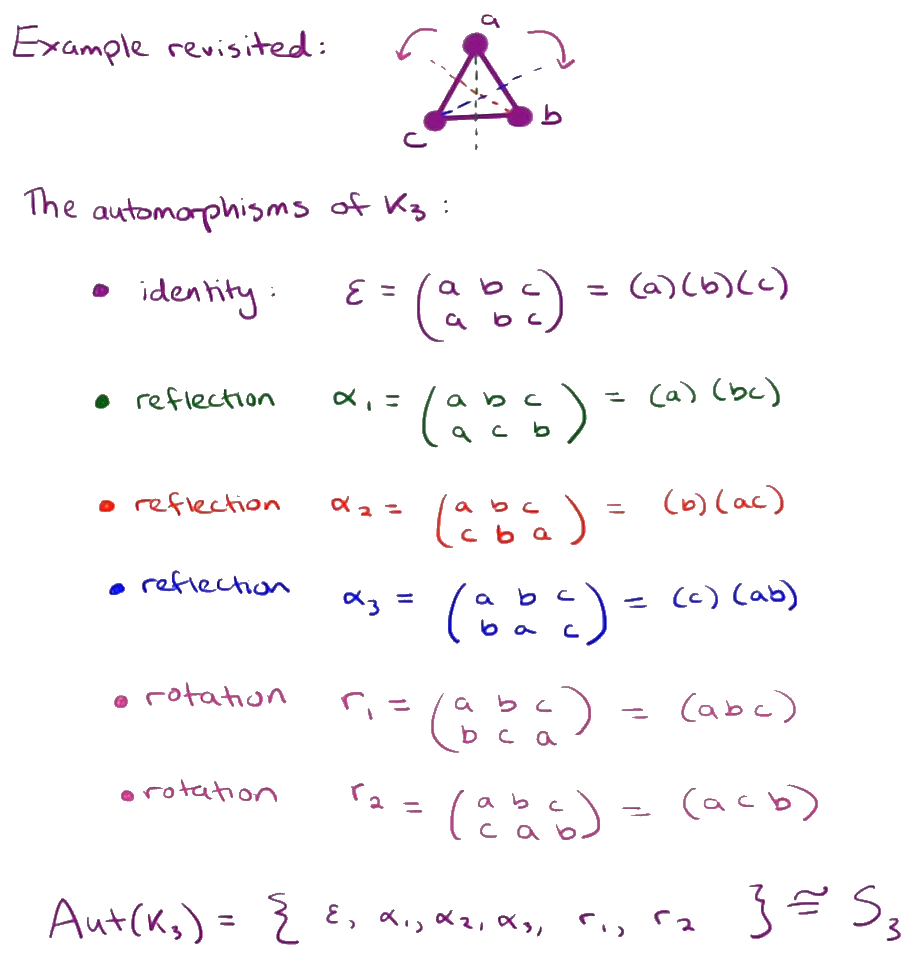 Example revisited:
a
c b
The automorphisms of K₃ :
• identity: ε = (a b c
a b c) = (a)(b)(c)
• reflection α₁ = (a b c
a c b) = (a) (bc)
• reflection α₂ = (a b c
c b a) = (b)(ac)
• reflection α₃ = (a b c
b a c) = (c) (ab)
• rotation r₁ = (a b c
b c a) = (abc)
• rotation r₂ = (a b c
c a b) = (acb)
Aut(K₃) = { ε, α₁, α₂, α₃, r₁, r₂ } ≅ S₃